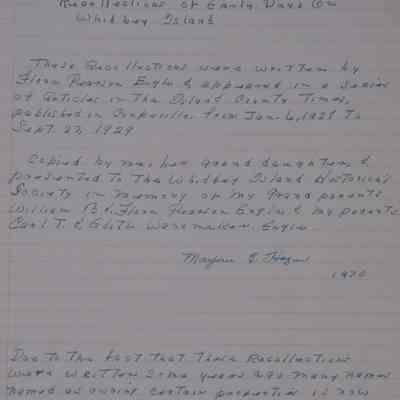 Recollections of Early Days On
Whidbey Island
These Recollections were written by
Flora Pearson Engle & appeared in a series
of articles in The Island County Times,
published in Coupeville from Jan. 6, 1928 To
Sept. 27, 1929
Copied by me, her grand daughter, &
presented To The Whidbey Island Historical
Society in memory of my Grand parents
William B. & Flora Pearson Engle & my parents
Carl T. & Edith Wanamaker Engle
Marjorie E.
1970
Due to the fact that These Recollections
were written some years ago many names
named as owning certain properties is now